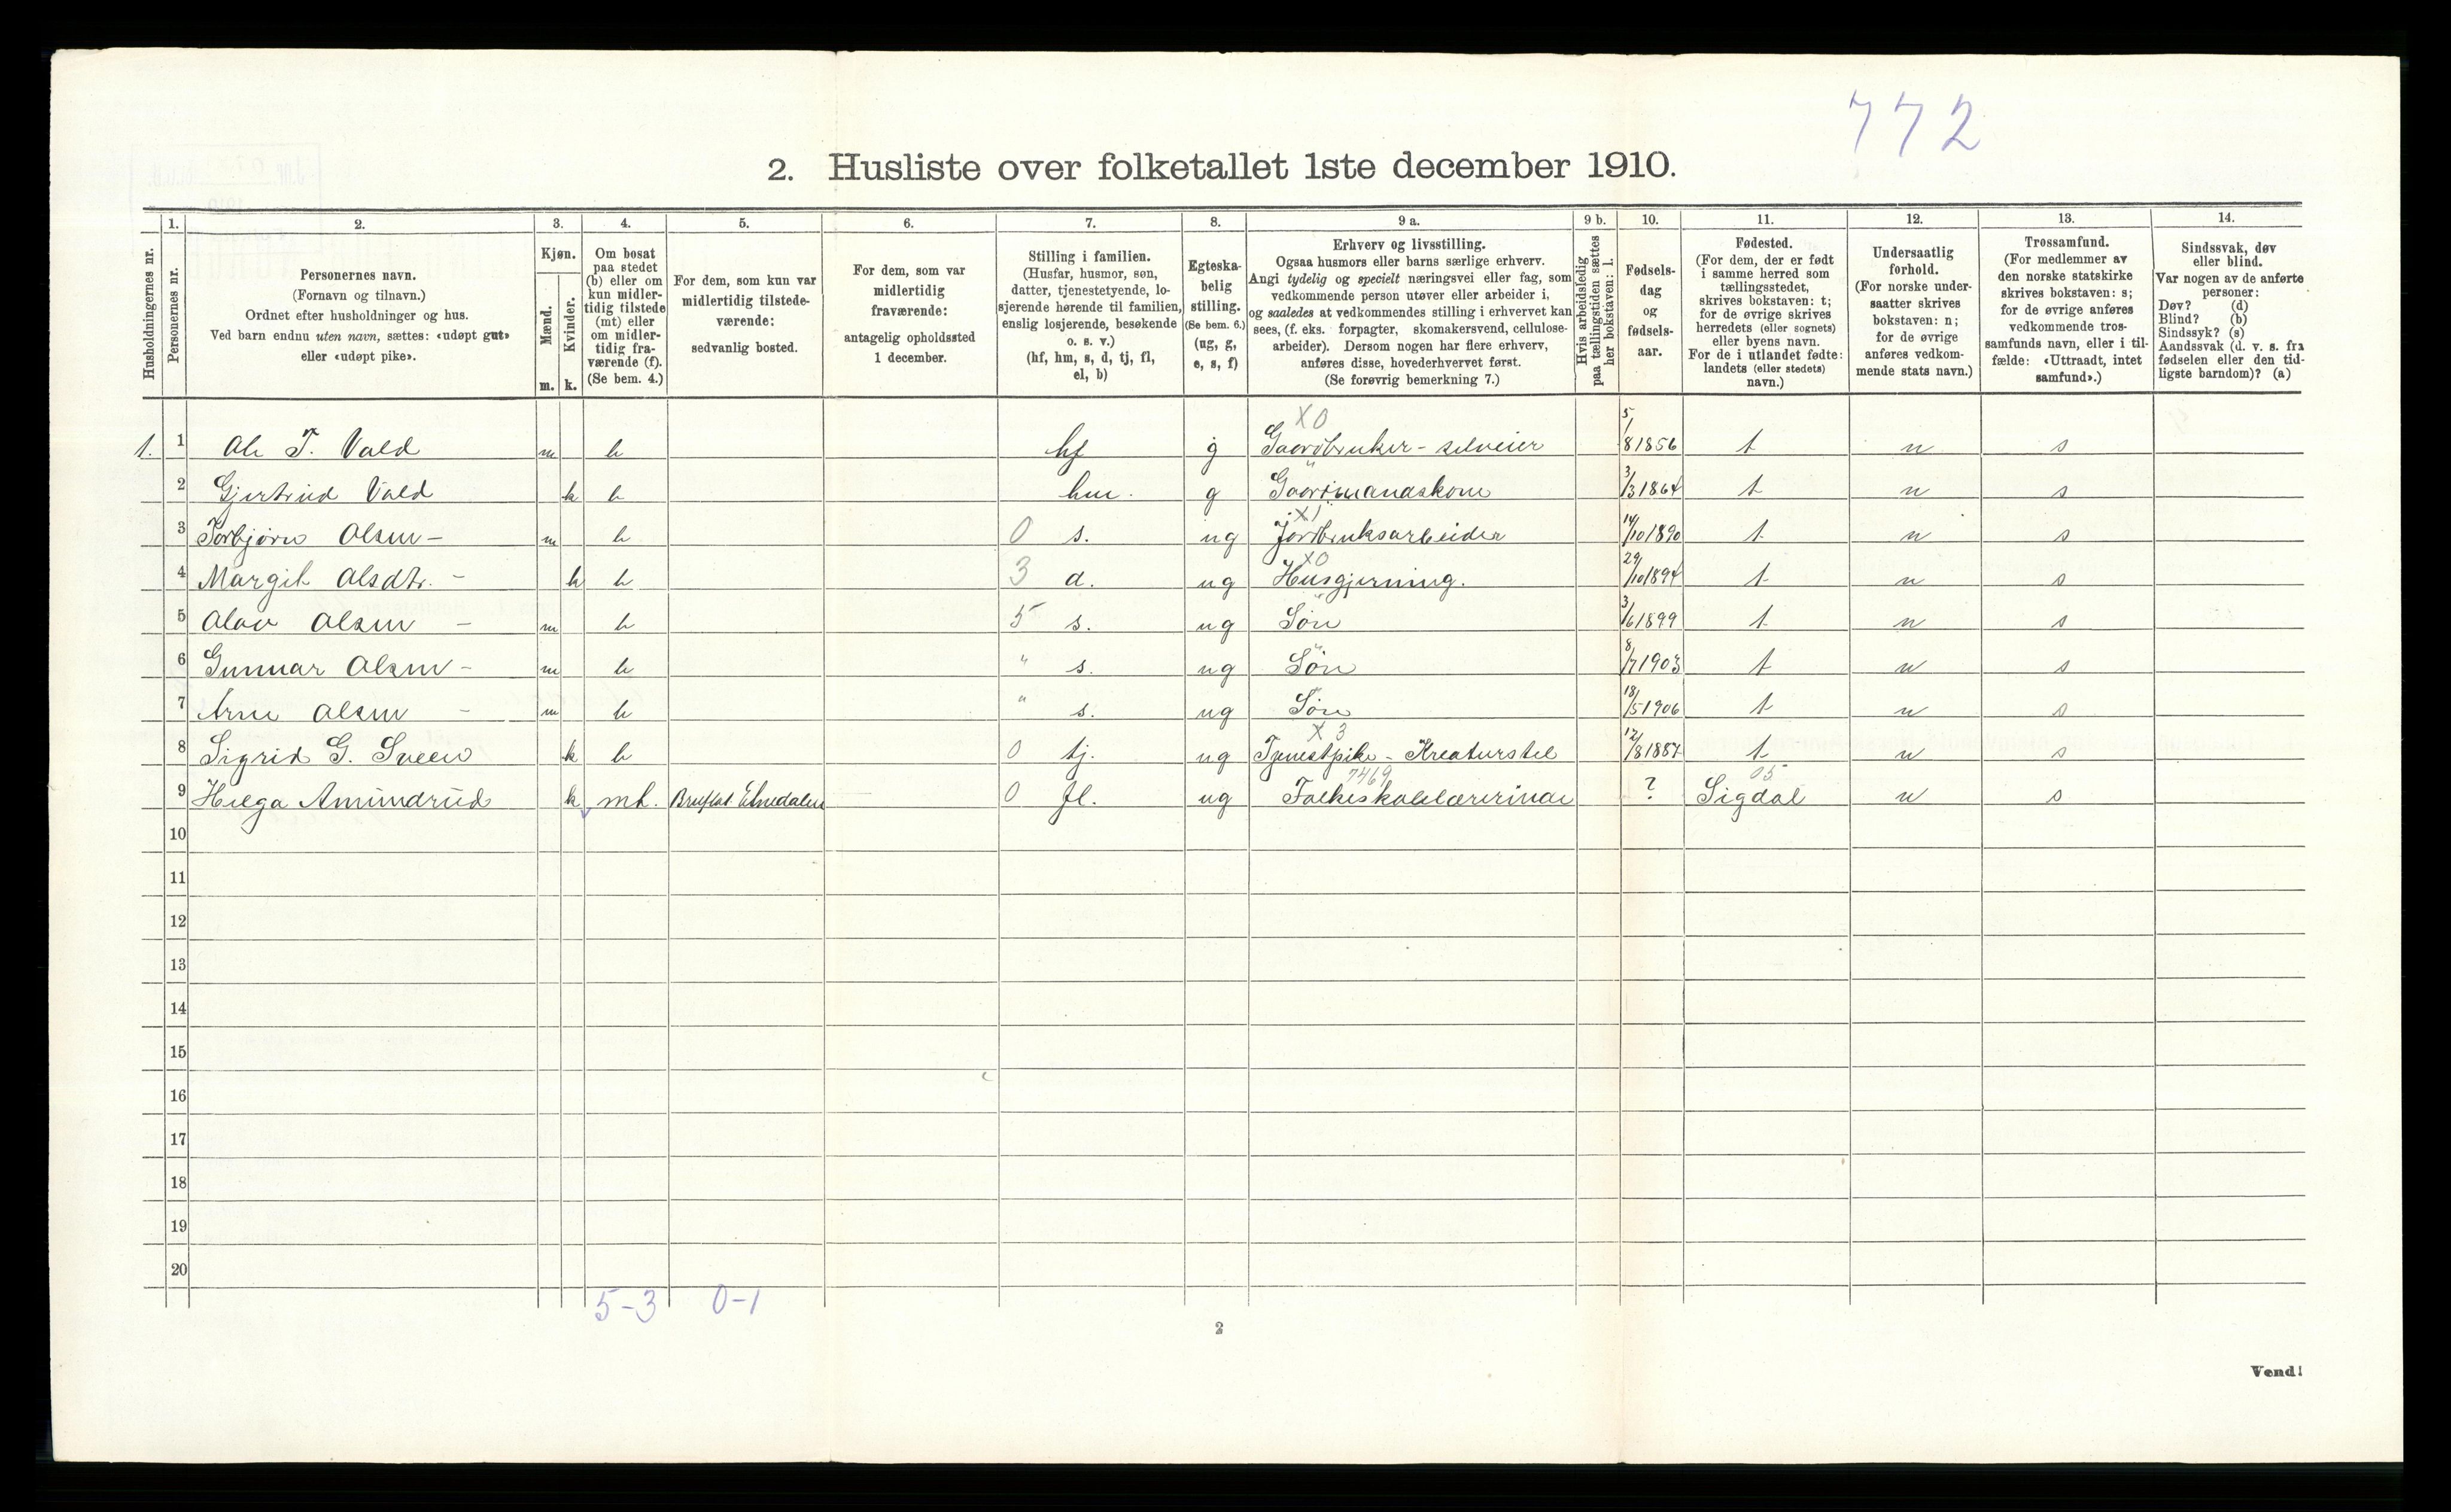 772
2. Husliste over folketallet 1ste december 1910.
Husholdningernes nr.
1. Personernes nr.
2. Personernes navn.
(Fornavn og tilnavn.)
Ordnet efter husholdninger og hus.
Ved barn endnu uten navn, sættes: «udøpt gut»
eller «udøpt pike».
3. Kjøn.
Mænd. m.
Kvinder. k.
4. Om bosat
paa stedet
(b) eller om
kun midler-
tidig tilstede
(mt) eller
om midler-
tidig fra-
værende (f).
(Se bem. 4.)
5. For dem, som kun var
midlertidig tilstede-
værende:
sedvanlig bosted.
6. For dem, som var
midlertidig
fraværende:
antagelig opholdssted
1 december.
7. Stilling i familien.
(Husfar, husmor, søn,
datter, tjenestetyende, lo-
sjerende hørende til familien,
enslig losjerende, besøkende
o. s. v.)
(hf, hm, s, d, tj, fl,
el, b)
8. Egteska-
belig
stilling.
(Se bem. 6.)
(ug, g,
e, s, f)
9 a. Erhverv og livsstilling.
Ogsaa husmors eller barns særlige erhverv.
Angi tydelig og specielt næringsvei eller fag, som
vedkommende person utøver eller arbeider i,
og saaledes at vedkommendes stilling i erhvervet kan
sees, (f. eks. forpagter, skomakersvend, cellulose-
arbeider). Dersom nogen har flere erhverv,
anføres disse, hovederhvervet først.
(Se forøvrig bemerkning 7.)
9 b. Hvis arbeidsledig
paa tællingstiden sættes
her bokstaven: l.
10. Fødsels-
dag
og
fødsels-
aar.
11. Fødested.
(For dem, der er født
i samme herred som
tællingsstedet,
skrives bokstaven: t;
for de øvrige skrives
herredets (eller sognets)
eller byens navn.
For de i utlandet fødte:
landets (eller stedets)
navn.)
12. Undersaatlig
forhold.
(For norske under-
saatter skrives
bokstaven: n;
for de øvrige
anføres vedkom-
mende stats navn.)
13. Trossamfund.
(For medlemmer av
den norske statskirke
skrives bokstaven: s;
for de øvrige anføres
vedkommende tros-
samfunds navn, eller i til-
fælde: «Uttraadt, intet
samfund».)
14. Sindssvak, døv
eller blind.
Var nogen av de anførte
personer:
Døv? (d)
Blind? (b)
Sindssyk? (s)
Aandssvak (d. v. s. fra
fødselen eller den tid-
ligste barndom)? (a)
X0
1. 1 Ole T. Vald m b hf g Gaardbruker - selveier 5/8 1856 t n s
2 Gjertrud Vald k b hm. g Gaardmandskone 3/3 1864 t n s
X1
3 Torbjørn Olsen - m b 0 s. ug Jordbruksarbeider 14/10 1890 t n s
X0
4 Margit Olsdtr. - k b 3 d. ug Husgjerning. 29/10 1894 t n s
5 Olav Olsen - m b 5 s. ug Søn 3/6 1899 t n s
6 Gunnar Olsen - m b " s. ug Søn 8/7 1903 t n s
7 Arne Olsen - m b " s. ug Søn 18/5 1906 t n s
X 3
8 Sigrid G. Sveen k b 0 tj. ug Tjenestpike - Kreaturstel 12/8 1887 t n s
7469 05
9 Helga Amundrud k mt. Bruflat Etnedalen 0 fl. ug Folkeskolelærerinde ? Sigdal n s
10
11
12
13
14
15
16
17
18
19
20
5-3 0-1
2
Vend!